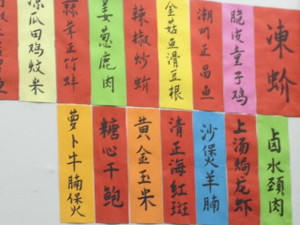 丝瓜田鸡蚊米
蒜茸正竹蚌
姜葱鹿肉
辣椒炒蚧
金菇鱼滑豆根
潮州正昌鱼
脆皮童子鸡
冻蚧
萝卜牛腩煲
糖心干鲍
黄金玉米
清正海红斑
沙煲羊腩
上汤焗龙虾
卤水颈肉